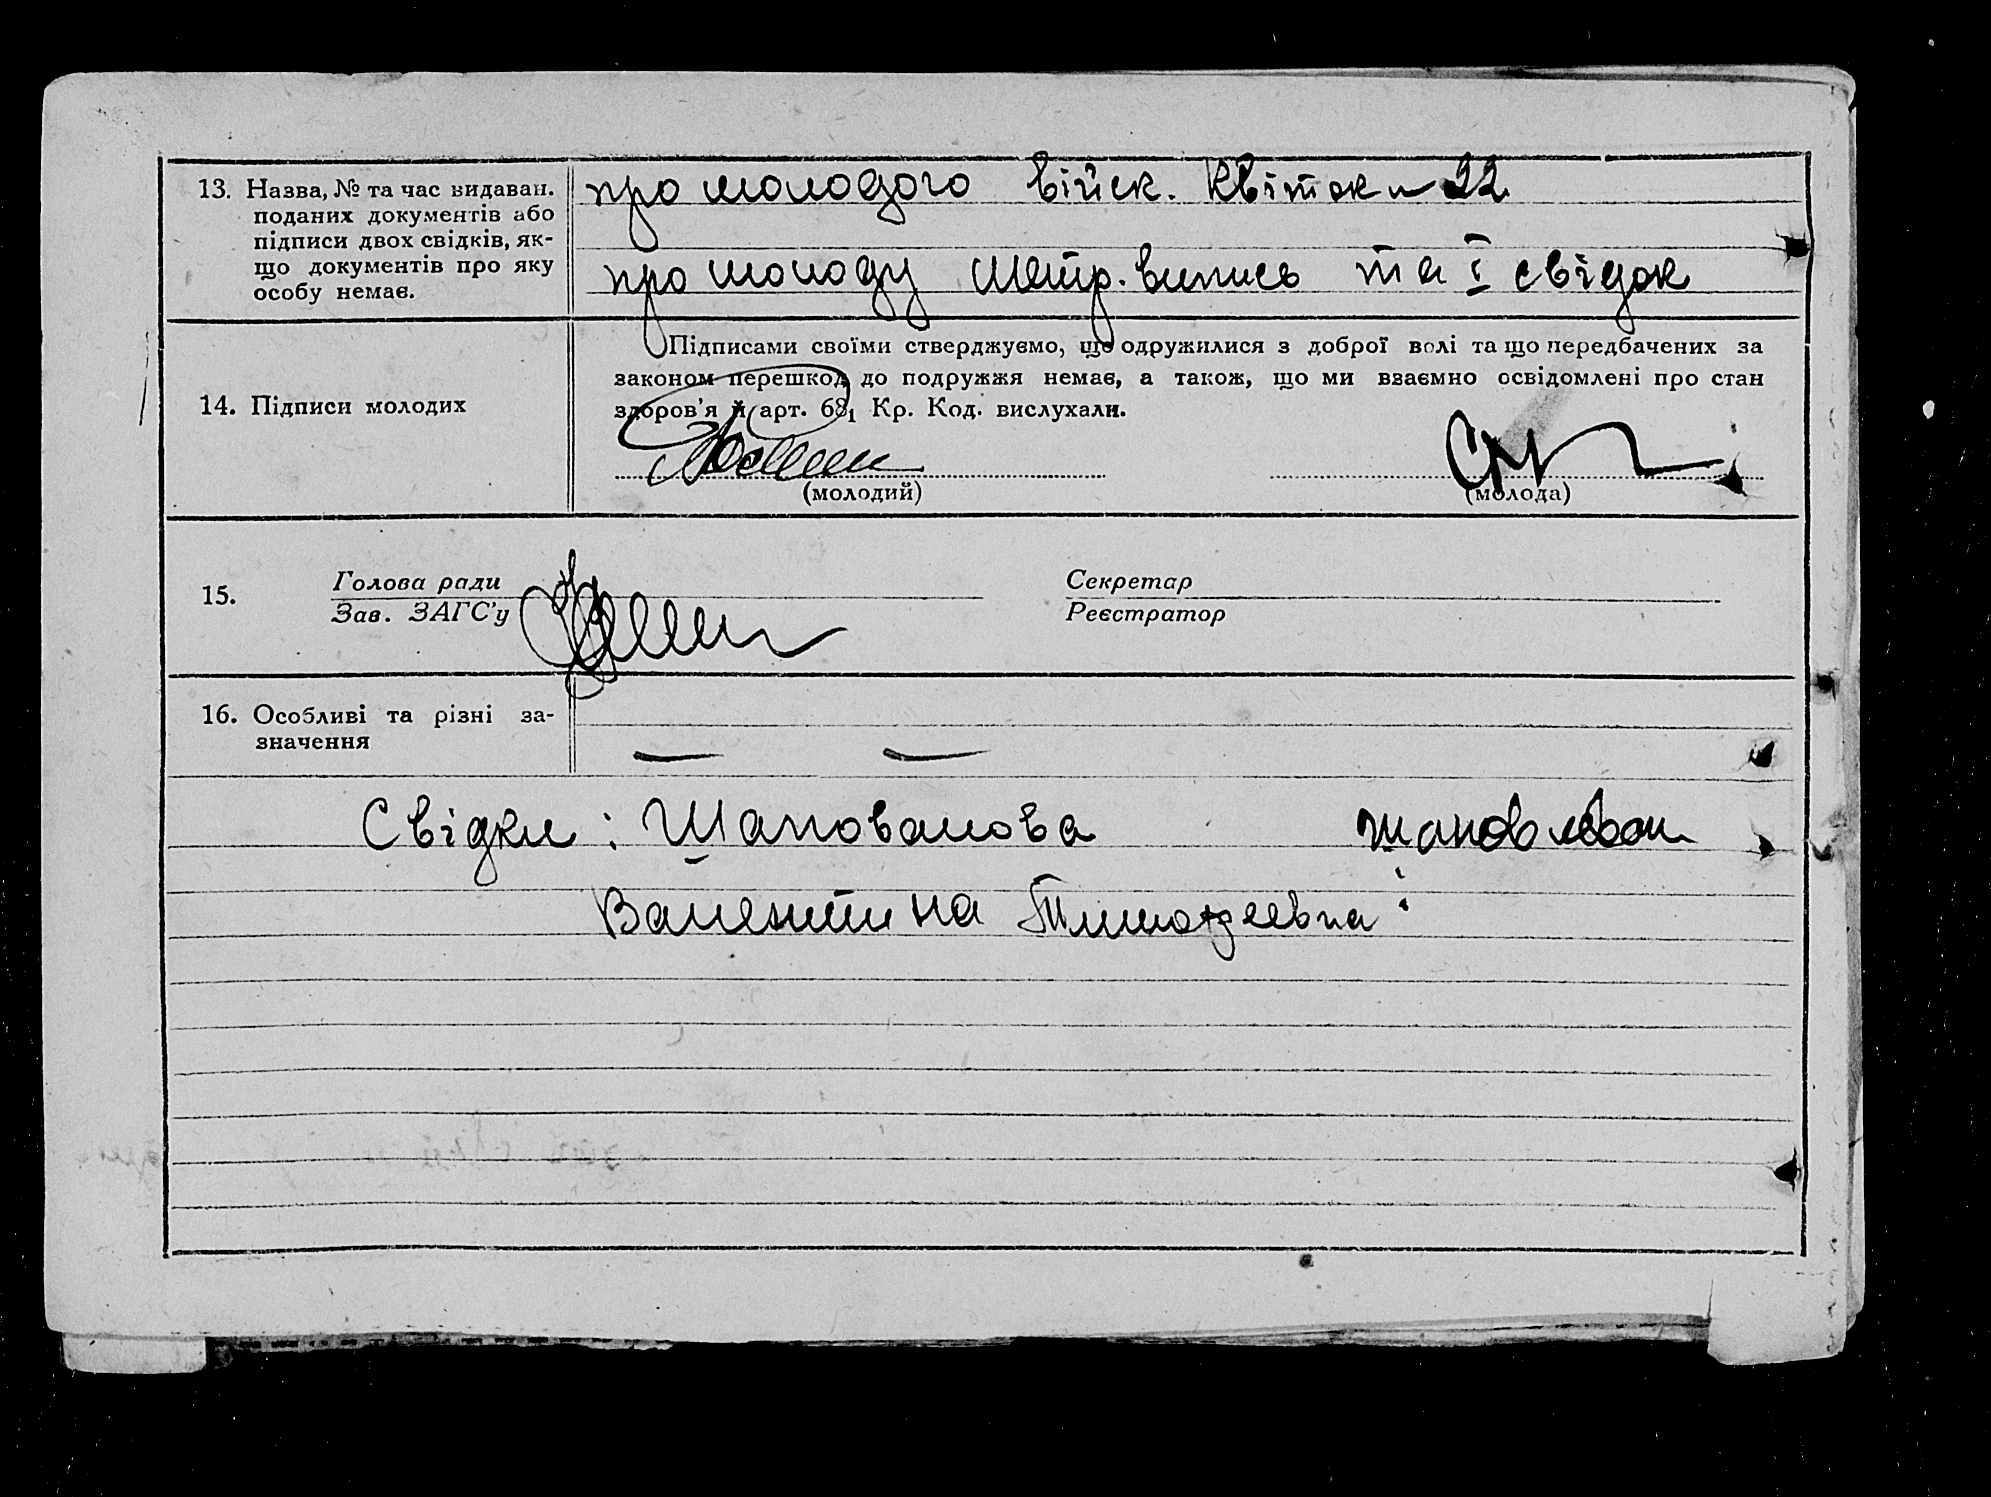 13. Назва, № та час видаван.
поданих документів або
підписи двох свідків, як-
що документів про яку
особу немає.
про молодого військ. Квіток № 22
про молоду Метр. випись та I свідок
14. Підписи молодих
Підписами своїми стверджуємо, що одружилися з доброї волі та що передбачених за
законом перешкод до подружжя немає, а також, що ми взаємно освідомлені про стан
здоров'я й арт. 68₁ Кр. Код. вислухали.
(молодий)
(молода)
15.
Голова ради
Зав. ЗАГС'у
Секретар
Реєстратор
16. Особливі та різні за-
значення
— —
Свідки: Шаповалова
Валентина Тимофеевна